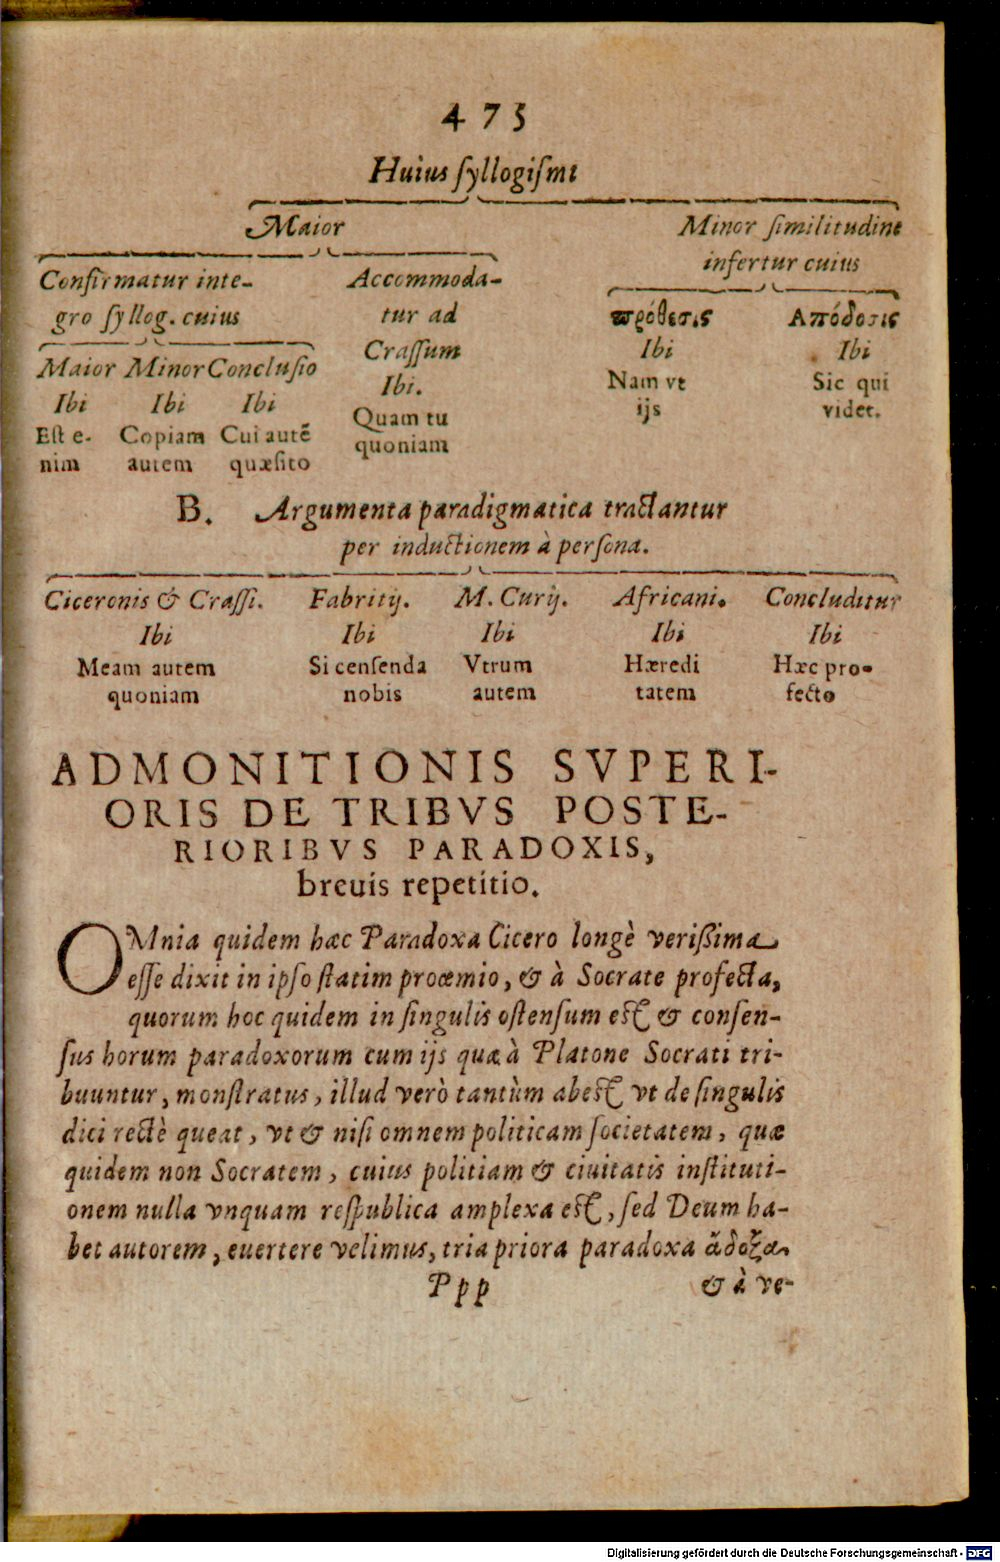 475
Huius ſyllogiſmi
Maior Minor ſimilitudine
infertur cuius
Confirmatur inte-
gro ſyllog. cuius
Accommoda-
tur ad
Craſſum
Ibi.
Quam tu
quoniam
πρόθεσις Απόδοσις
Ibi Ibi
Nam vt Sic qui
ijs videt.
Maior Minor Concluſio
Ibi Ibi Ibi
Eſt e- Copiam Cui autē
nim autem quæſito
B. Argumenta paradigmatica tractantur
per inductionem à perſona.
Ciceronis & Craſſi. Fabritij. M. Curij. Africani. Concluditur
Ibi Ibi Ibi Ibi Ibi
Meam autem Si cenſenda Vtrum Hæredi Hæc pro-
quoniam nobis autem tatem fecto
ADMONITIONIS SVPERI-
ORIS DE TRIBVS POSTE-
RIORIBVS PARADOXIS,
breuis repetitio.
OMnia quidem hæc Paradoxa Cicero longè veriſſima
eſſe dixit in ipſo ſtatim proœmio, & à Socrate profecta,
quorum hoc quidem in ſingulis oſtenſum eſt & conſen-
ſus horum paradoxorum cum ijs quæ à Platone Socrati tri-
buuntur, monſtratus, illud verò tantùm abeſt vt de ſingulis
dici rectè queat, vt & niſi omnem politicam ſocietatem, quæ
quidem non Socratem, cuius politiam & ciuitatis inſtituti-
onem nulla vnquam reſpublica amplexa eſt, ſed Deum ha-
bet autorem, euertere velimus, tria priora paradoxa ἄδοξα
Ppp & à ve-
Digitalisierung gefördert durch die Deutsche Forschungsgemeinschaft - DFG